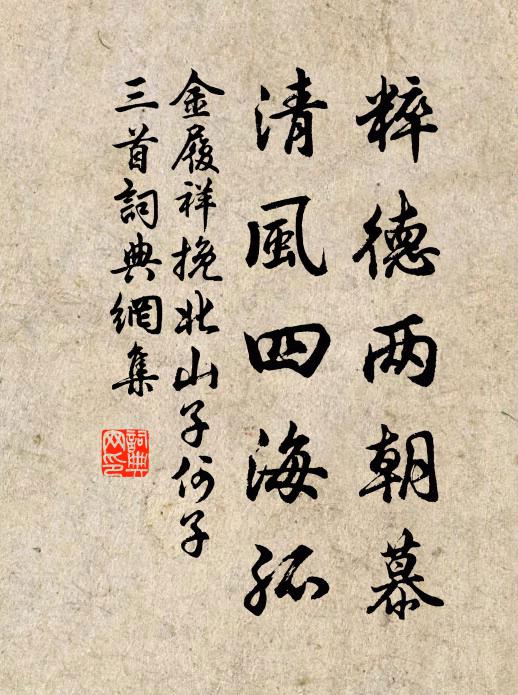 粹德两朝慕
清風四海孤
金履祥挽北山子何子
三首詞典網集
詞典网印